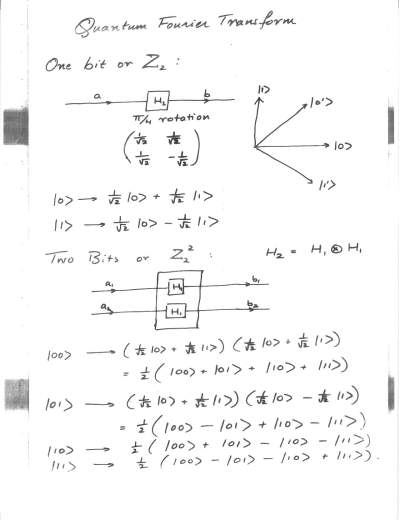 Quantum Fourier Transform
One bit or Z₂ :
a H₁ b
π/4 rotation
( 1/√2 1/√2
1/√2 -1/√2 )
|1> |0'> |0> |1'>
|0> → 1/√2 |0> + 1/√2 |1>
|1> → 1/√2 |0> - 1/√2 |1>
Two Bits or Z₂² : H₂ = H₁ ⊗ H₁
a₁ H₁ b₁
a₂ H₁ b₂
|00> → (1/√2 |0> + 1/√2 |1>) (1/√2 |0> + 1/√2 |1>)
= 1/2 ( |00> + |01> + |10> + |11>)
|01> → (1/√2 |0> + 1/√2 |1>) (1/√2 |0> - 1/√2 |1>)
= 1/2 ( |00> - |01> + |10> - |11>)
|10> → 1/2 ( |00> + |01> - |10> - |11>)
|11> → 1/2 ( |00> - |01> - |10> + |11>).